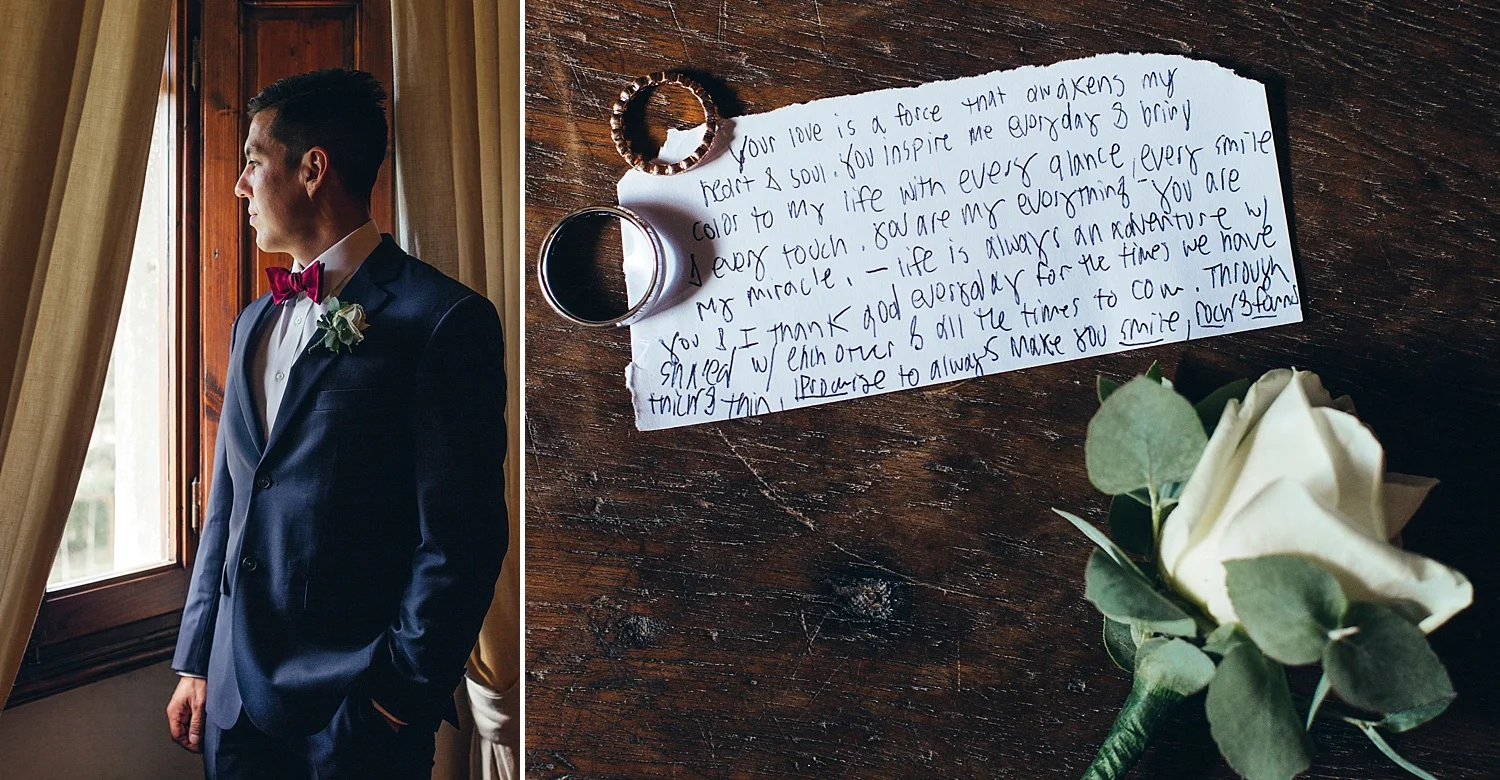 Your love is a force that awakens my
heart & soul. You inspire me everyday & bring
color to my life with every glance, every smile
& every touch. You are my everything - you are
my miracle. - life is always an adventure w/
you & I thank god everyday for the times we have
shared w/ each other & all the times to com. Through
thick & thin, I promise to always make you smile,